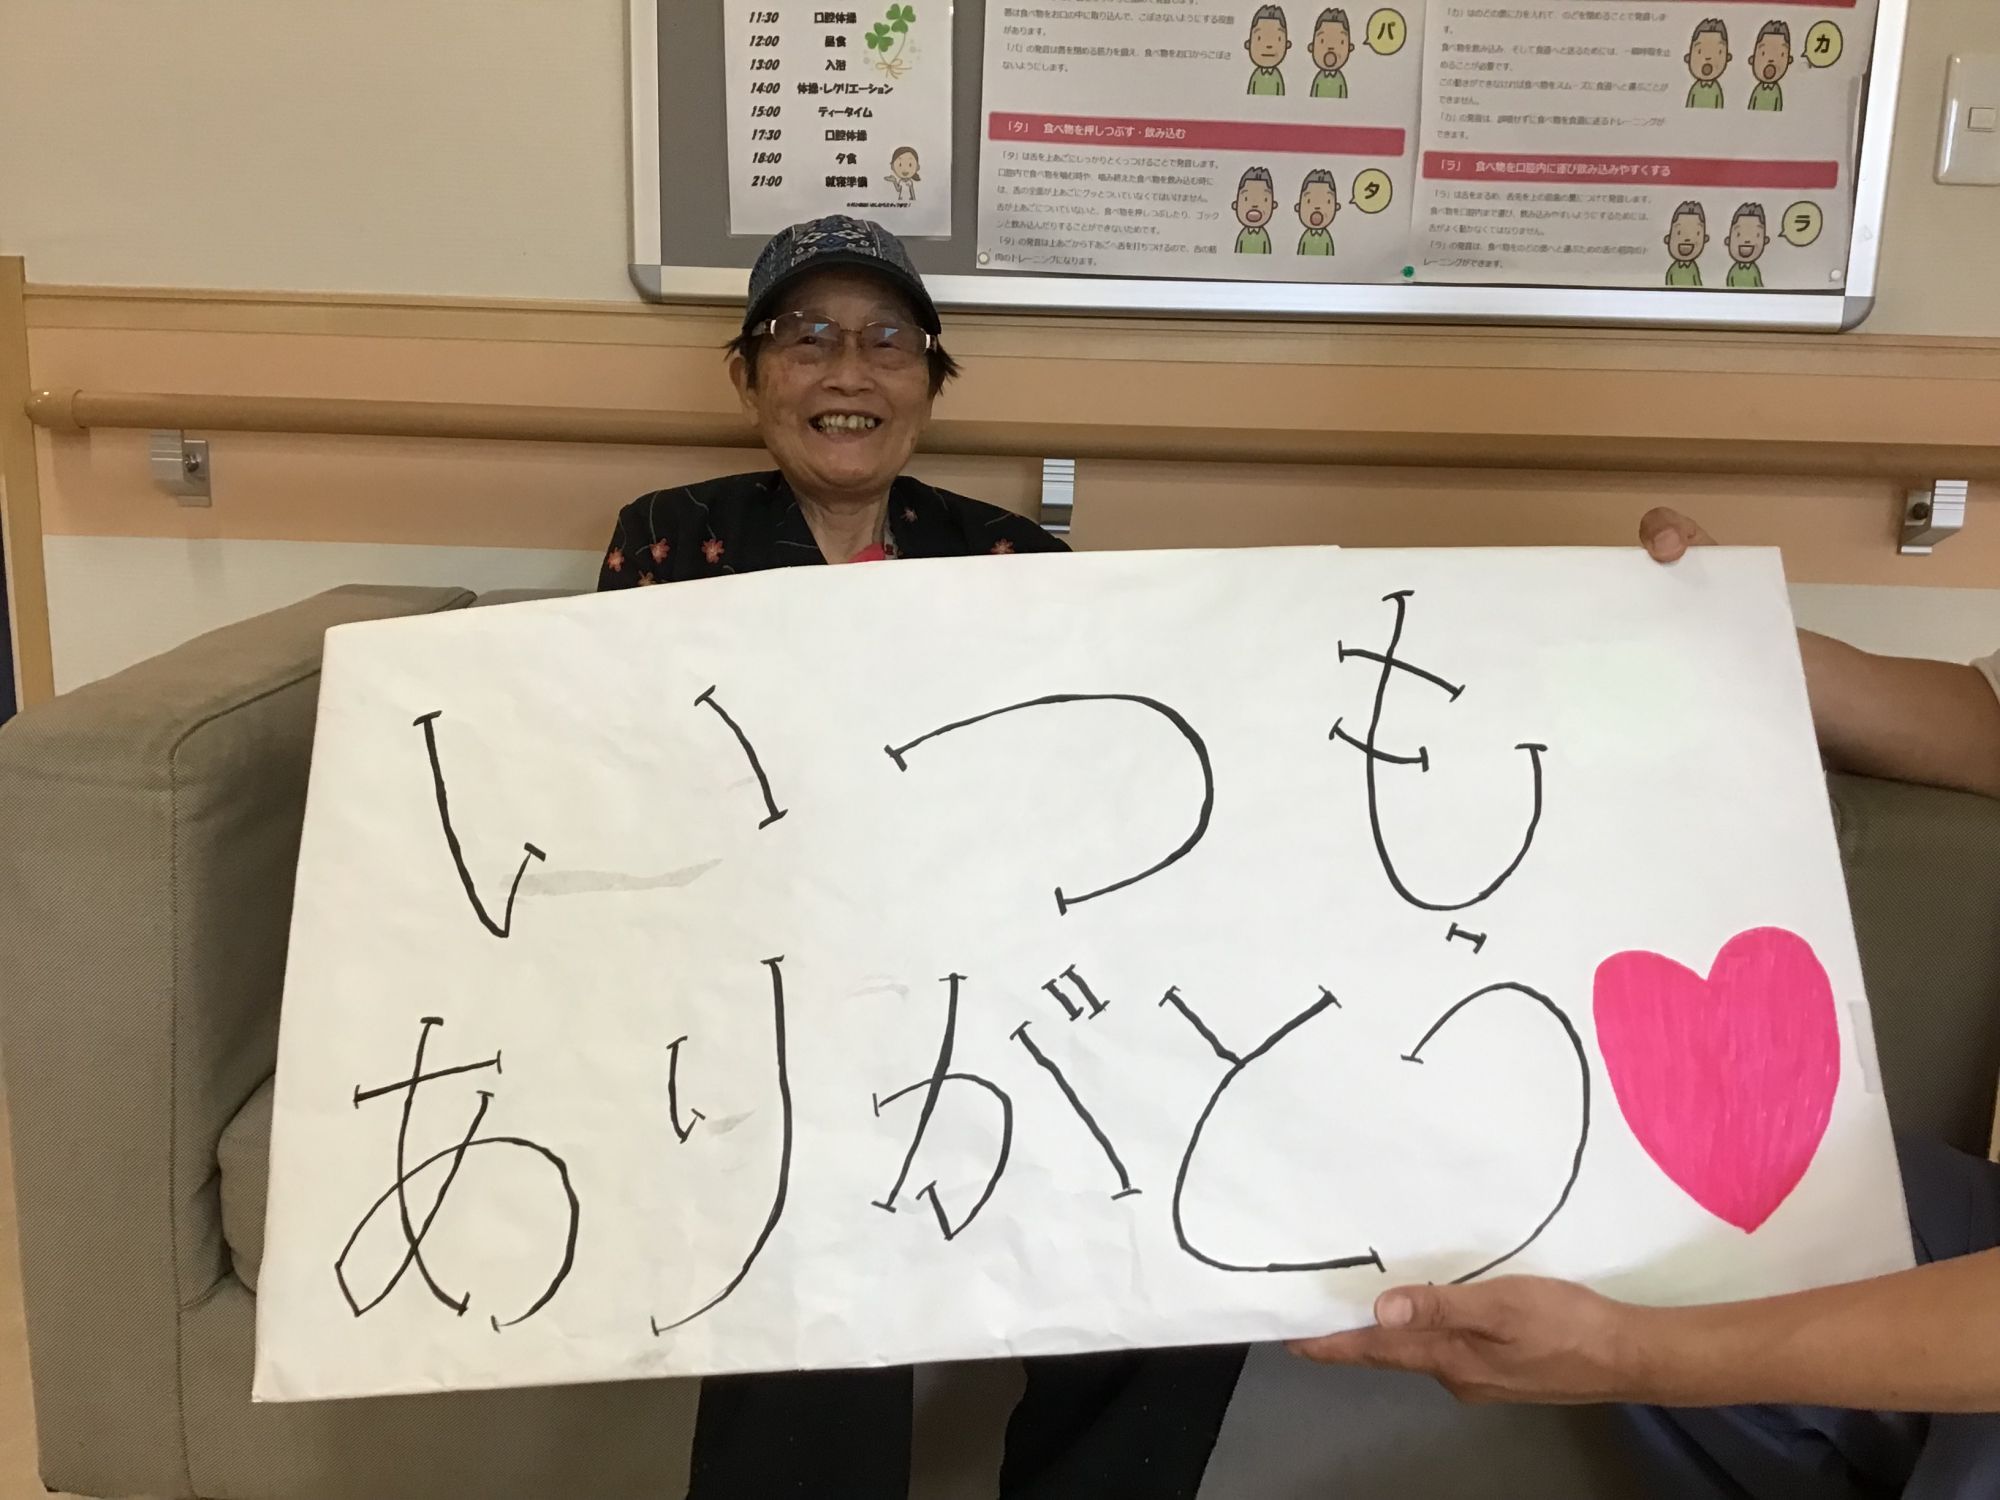 11:30 口腔体操
12:00 昼食
13:00 入浴
14:00 体操・レクリエーション
15:00 ティータイム
17:30 口腔体操
18:00 夕食
21:00 就寝準備
唇は食べ物をお口の中に取り込んで、こぼさないようにする役割
があります。
「パ」の発音は唇を閉める筋力を鍛え、食べ物をお口からこぼさ
ないようにします。
パ
「タ」 食べ物を押しつぶす・飲み込む
「タ」は舌を上あごにしっかりとくっつけることで発音します。
口腔内で食べ物を噛む時や、噛み終えた食べ物を飲み込む時に
は、舌の全面が上あごにグッとついていなくてはいけません。
舌が上あごについていないと、食べ物を押しつぶしたり、ゴック
ンと飲み込んだりすることができないためです。
「タ」の発音は上あごから下あごへ舌を打ちつけるので、舌の筋
肉のトレーニングになります。
タ
「カ」はのどの奥に力を入れて、のどを閉めることで発音しま
す。
食べ物を飲み込み、そして食道へと送るためには、一瞬呼吸を止
めることが必要です。
この動きができなければ食べ物をスムーズに食道へと運ぶことが
できません。
「カ」の発音は、誤嚥せずに食べ物を食道に送るトレーニングが
できます。
カ
「ラ」 食べ物を口腔内に運び飲み込みやすくする
「ラ」は舌をまるめ、舌先を上の前歯の裏につけて発音します。
食べ物を口腔内まで運び、飲み込みやすいようにするためには、
舌がよく動かなくてはなりません。
「ラ」の発音は、食べ物をのどの奥へと運ぶための舌の筋肉のト
レーニングができます。
ラ
いつも
ありがとう